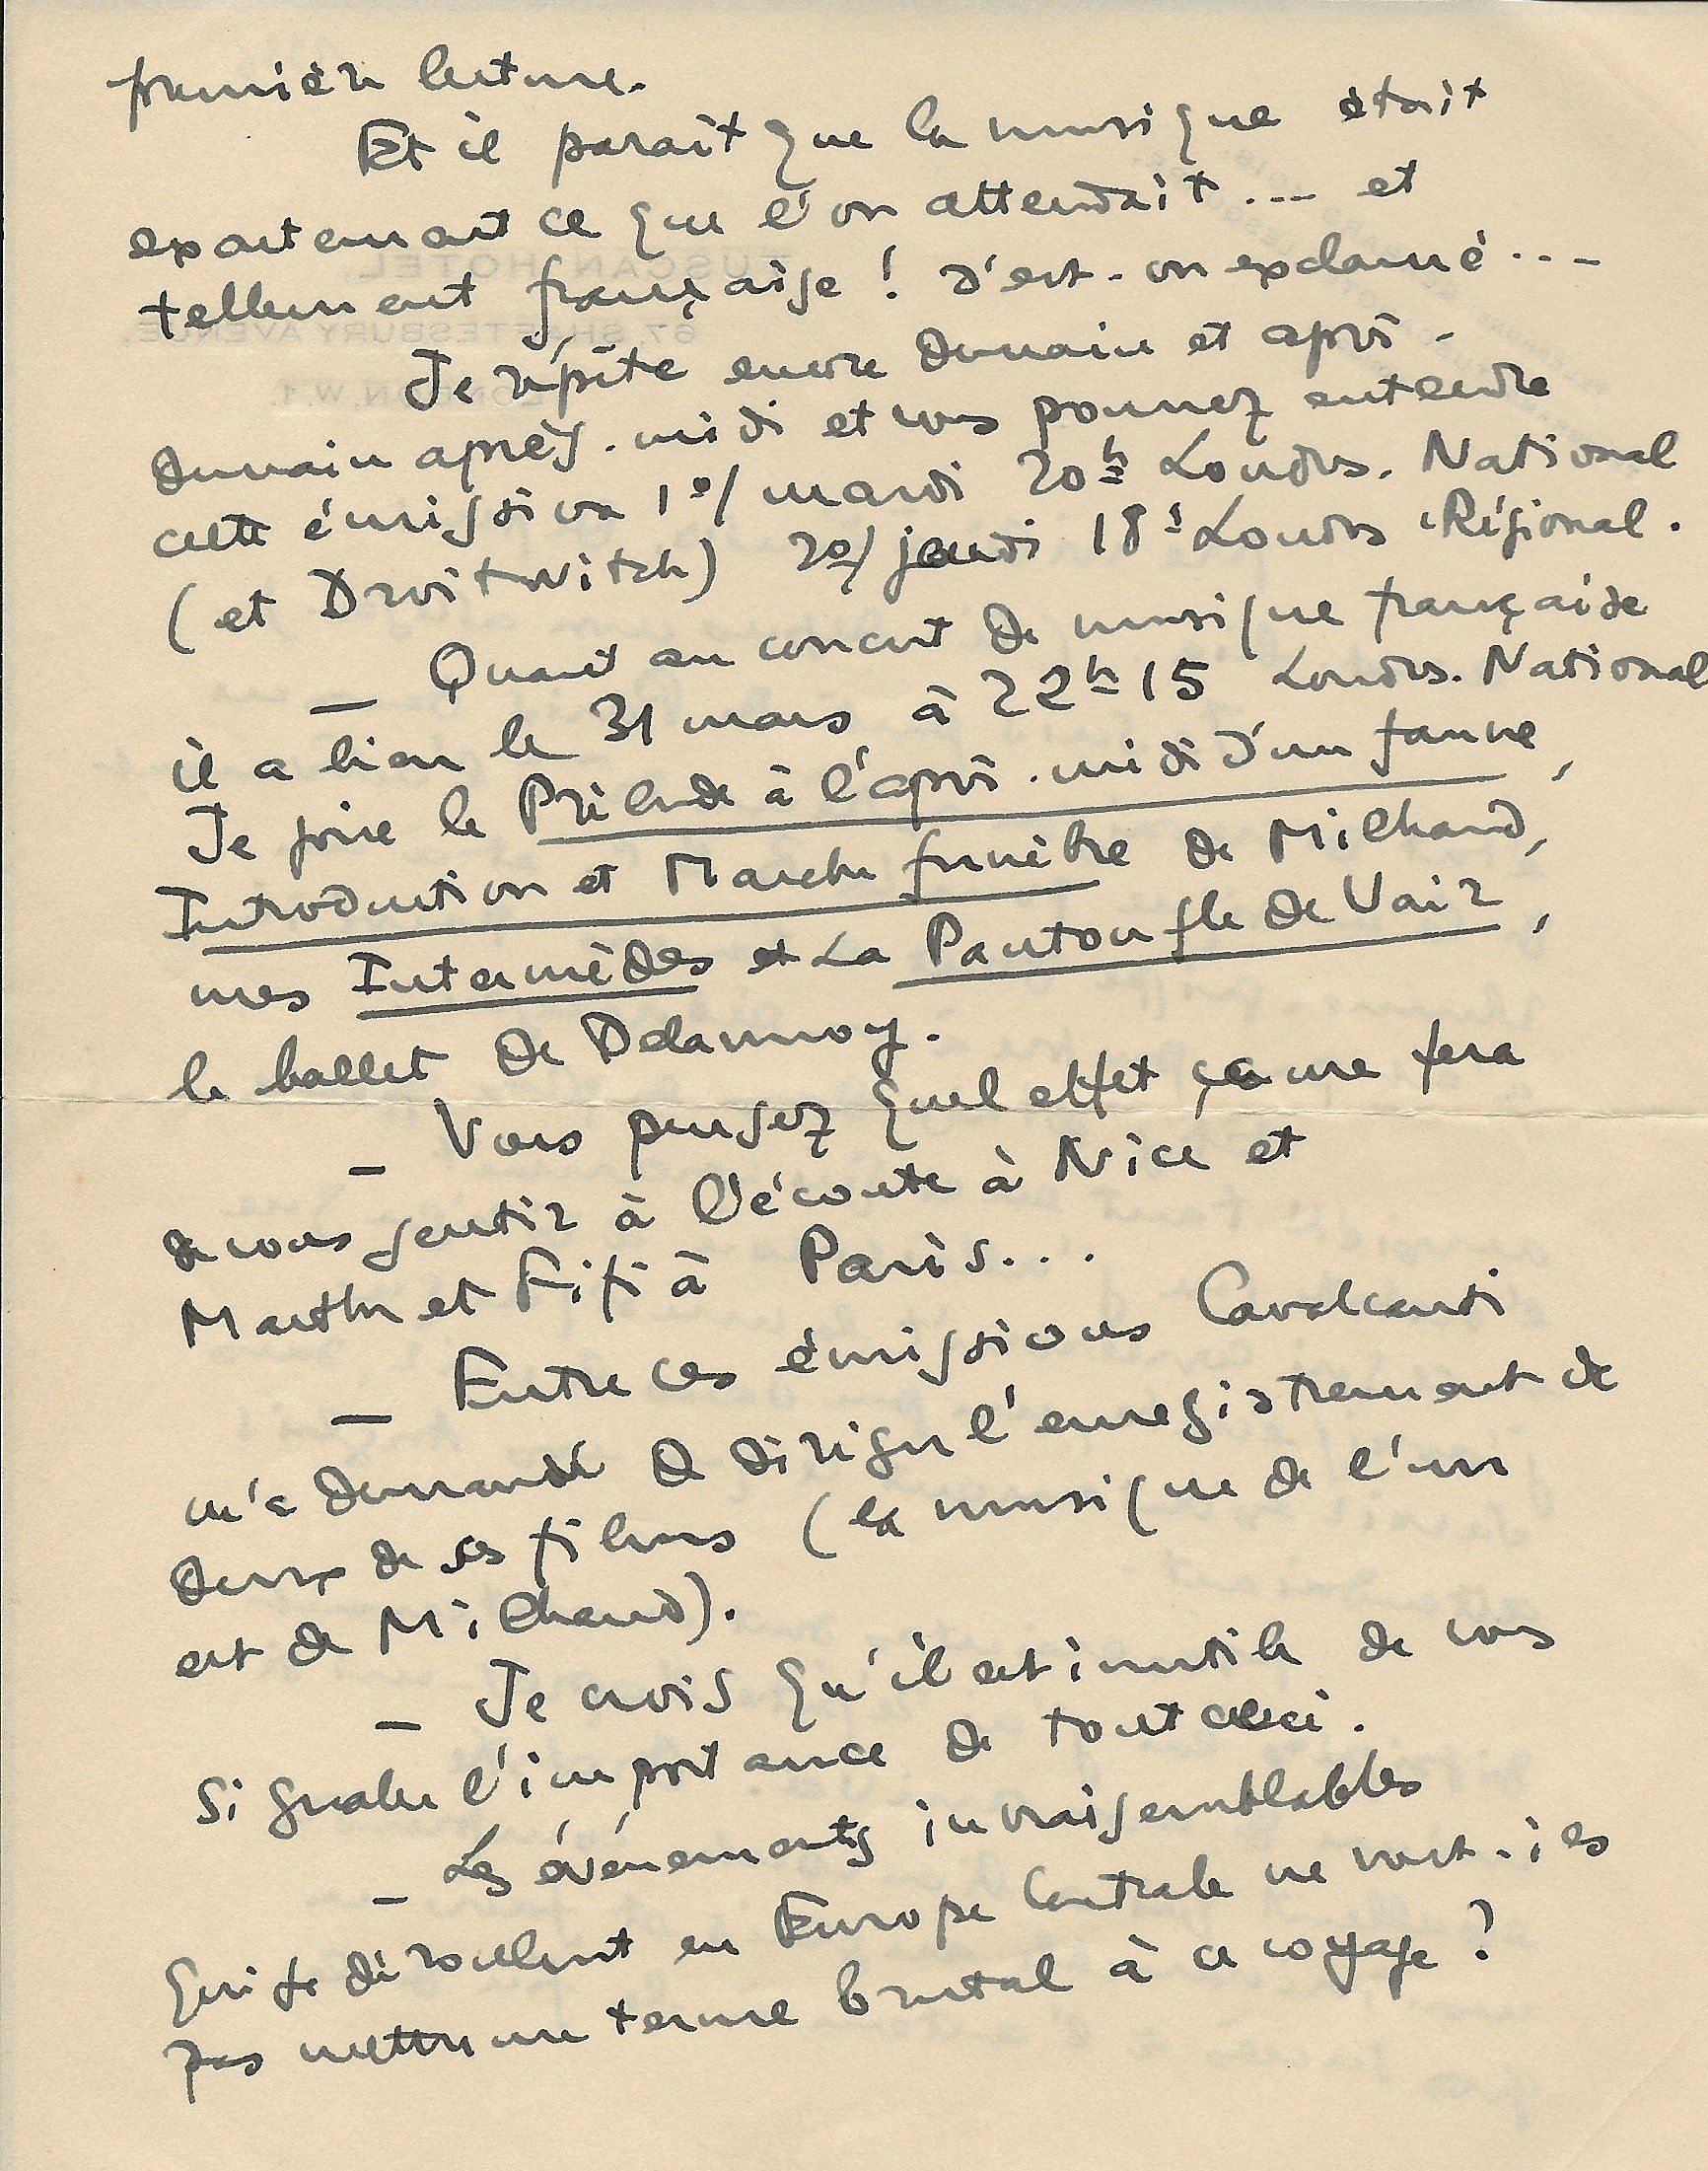 première lecture.
Et il paraît que la musique était
exactement ce que l'on attendait .... et
tellement française ! s'est-on exclamé ....
Je répète encore demain et après-
demain après-midi et vous pourrez entendre
cette émission 1º/ mardi 20h Londres-National
(et Droitwitch) 2º/ jeudi 18h Londres Régional.
— Quant au concert de musique française
il a lieu le 31 mars à 22h15 Londres-National
Je joue le Prélude à l'après-midi d'un faune,
Introduction et Marche funèbre de Milhaud,
mes Intermèdes et La Pantoufle de Vair,
le ballet de Delannoy.
— Vous pensez quel effet ça me fera
de vous sentir à l'écoute à Nice et
Marthe et Fifi à Paris...
— Entre ces émissions Cavalcanti
m'a demandé de diriger l'enregistrement de
deux de ses films (la musique de l'un
est de Milhaud).
— Je crois qu'il est inutile de vous
signaler l'importance de tout ceci.
— Les événements invraisemblables
qui se déroulent en Europe Centrale ne vont-ils
pas mettre un terme brutal à ce voyage ?
TUSCAN HOTEL,
67, SHAFTESBURY AVENUE,
N.W.1.